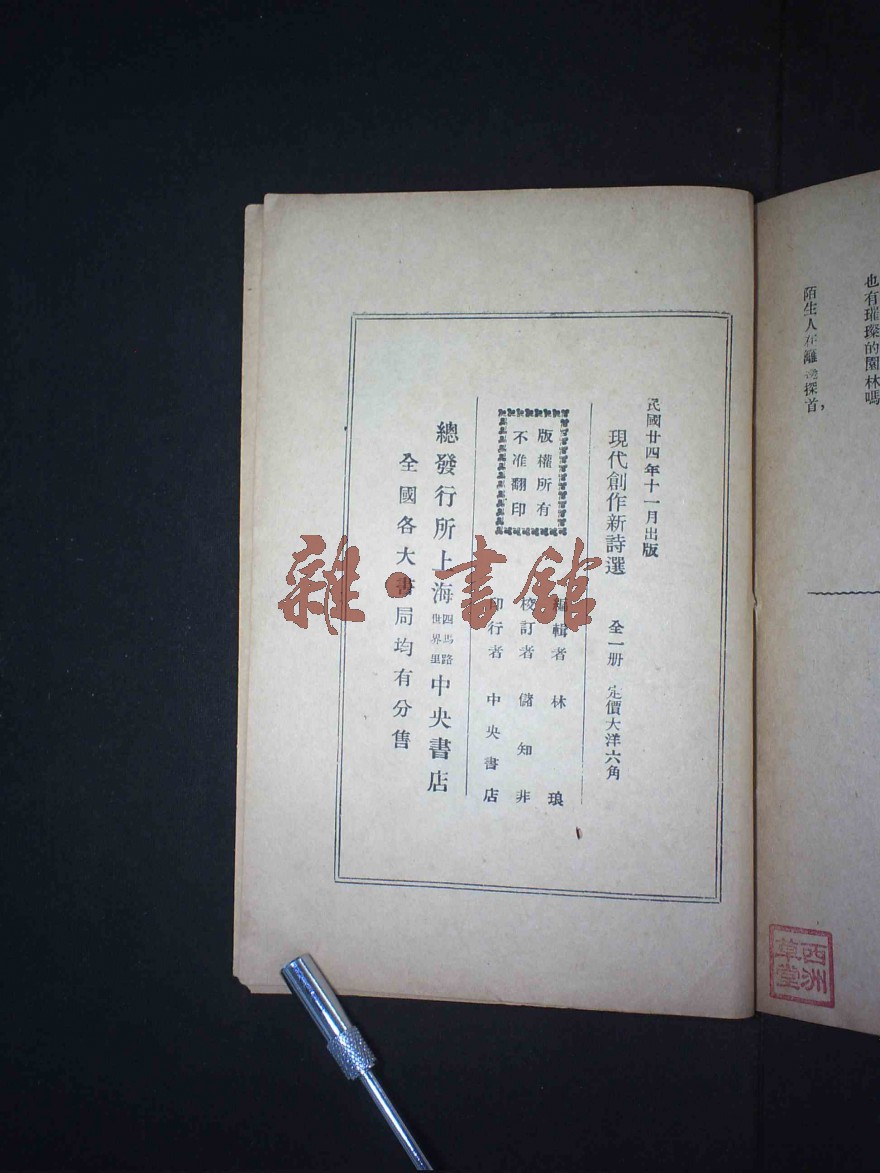 也有璀璨的園林嗎
陌生人在籬邊探首，
民國廿四年十一月出版
現代創作新詩選　全一册　定價大洋六角
版權所有
不准翻印
編輯者　林琅
校訂者　儲知非
印行者　中央書店
總發行所上海四馬路世界里中央書店
全國各大書局均有分售
雜·書館
西洲草堂